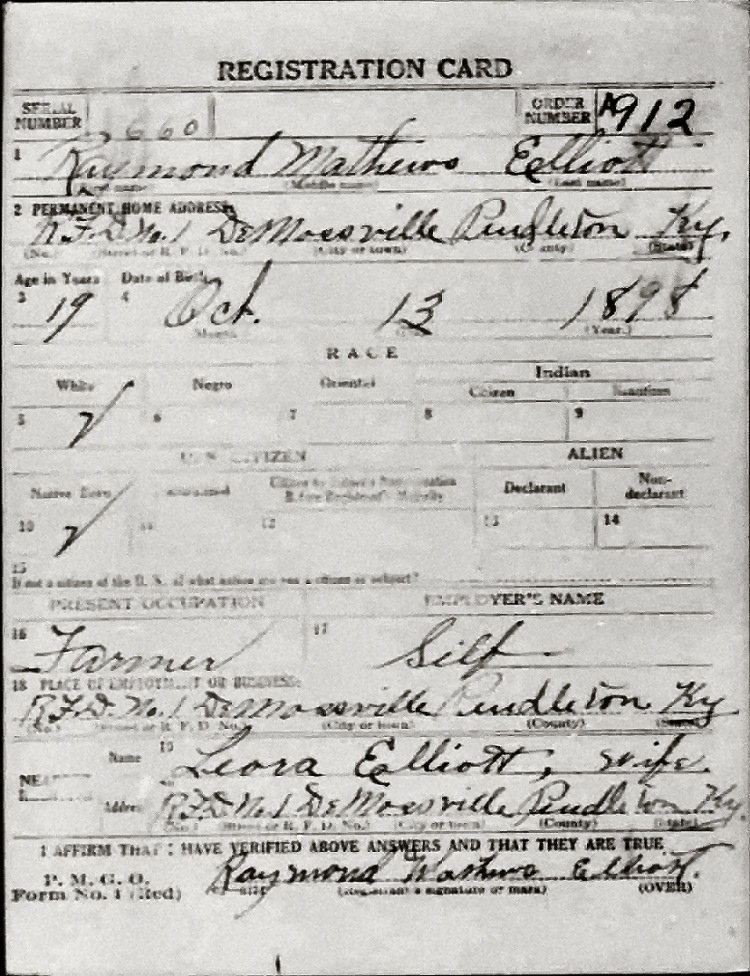 REGISTRATION CARD
SERIAL NUMBER 660 ORDER NUMBER A912
1 Raymond Mathews Elliott
(First name) (Middle name) (Last name)
2 PERMANENT HOME ADDRESS:
R.F.D. No. 1 DeMossville Pendleton Ky.
(No.) (Street or R. F. D. No.) (City or town) (County) (State)
Age in Years Date of Birth
3 19 4 Oct. 13 1898
Month. (Year.)
RACE
White Negro Oriental Indian
Citizen Noncitizen
5 ✓ 6 7 8 9
U. S. CITIZEN ALIEN
Native Born Naturalized Citizen by Father's Naturalization Before Registrant's Majority Declarant Non-declarant
10 ✓ 11 12 13 14
15
If not a citizen of the U. S., of what nation are you a citizen or subject?
PRESENT OCCUPATION EMPLOYER'S NAME
16 Farmer 17 Self
18 PLACE OF EMPLOYMENT OR BUSINESS:
R.F.D. No. 1 DeMossville Pendleton Ky
(No.) (Street or R. F. D. No.) (City or town) (County) (State)
Name 19 Leora Elliott, Wife.
NE
Address R.F.D No. 1 DeMossville Pendleton Ky.
(No.) (Street or R. F. D. No.) (City or town) (County) (State)
I AFFIRM THAT I HAVE VERIFIED ABOVE ANSWERS AND THAT THEY ARE TRUE
P. M. G. O.
Form No. 1 (Red) Raymond Elliott.
(Registrant's signature or mark) (OVER)